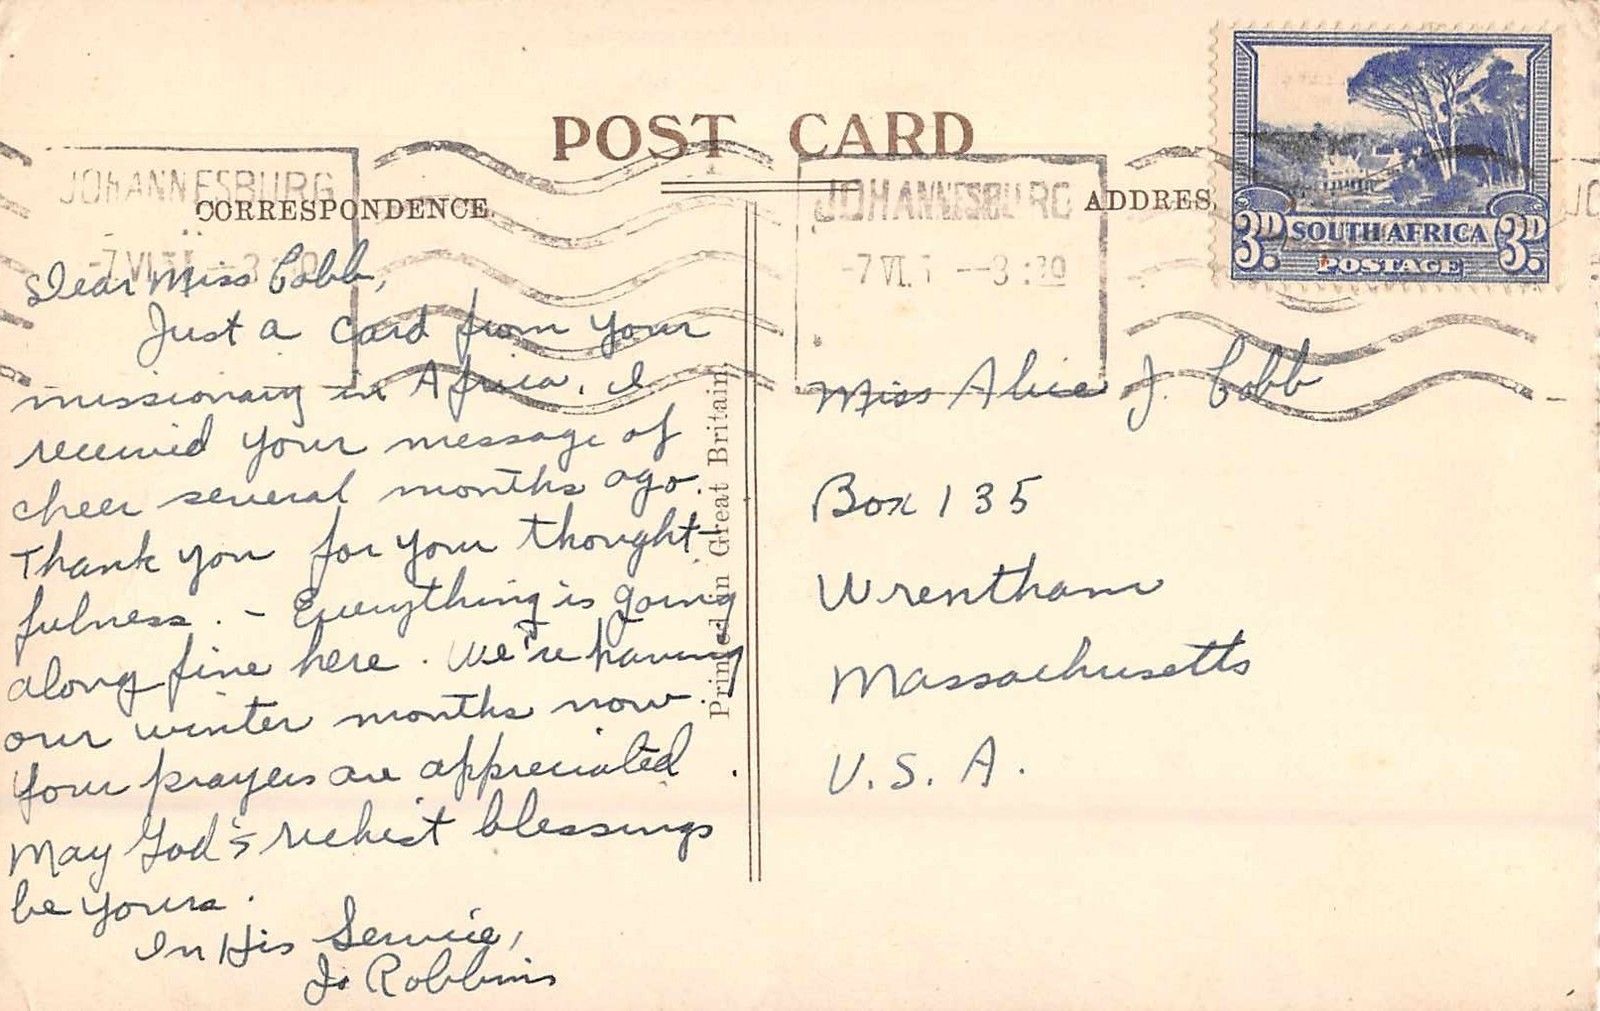 POST CARD
JOHANNESBURG
CORRESPONDENCE.
JOHANNESBURG
-7 VI. --3:30
ADDRES
3D. SOUTH AFRICA 3D.
POSTAGE
Dear Miss Cobb,
Just a card from your
missionary in Africa. I
received your message of
cheer several months ago.
Thank you for your thought-
fulness. - Everything is going
along fine here. We're having
our winter months now.
Your prayers are appreciated.
May God's richest blessings
be yours.
In His Service,
Jo Robbins
Printed in Great Britain.
Miss Alice J. Cobb
Box 135
Wrentham
Massachusetts
U.S.A.